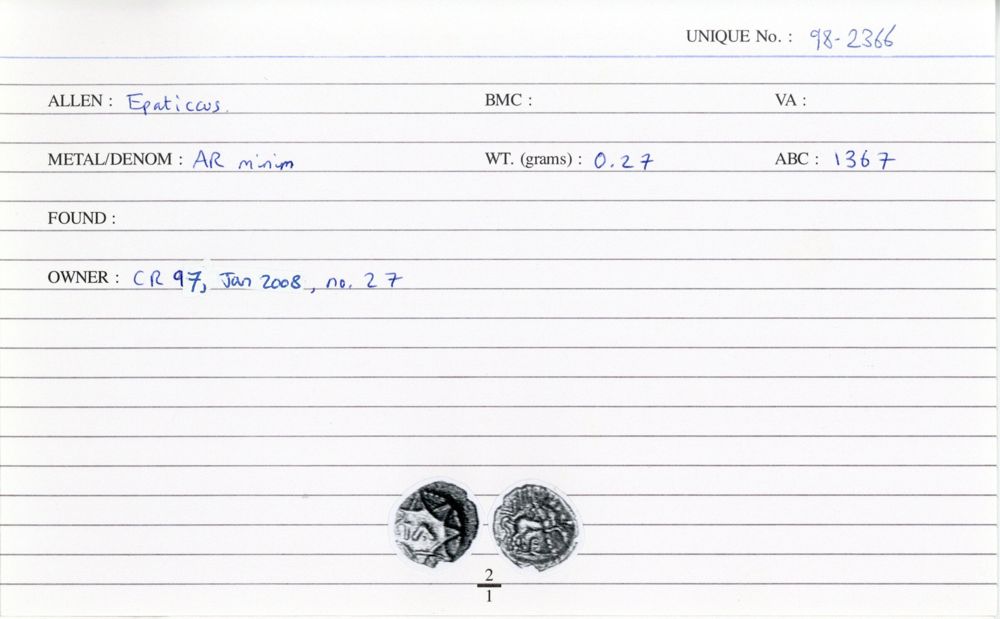 UNIQUE No. : 98-2366
ALLEN : Epaticcus. BMC : VA :
METAL/DENOM : AR minim WT. (grams) : 0.27 ABC : 1367
FOUND :
OWNER : CR 97, Jan 2008, no. 27
2
1